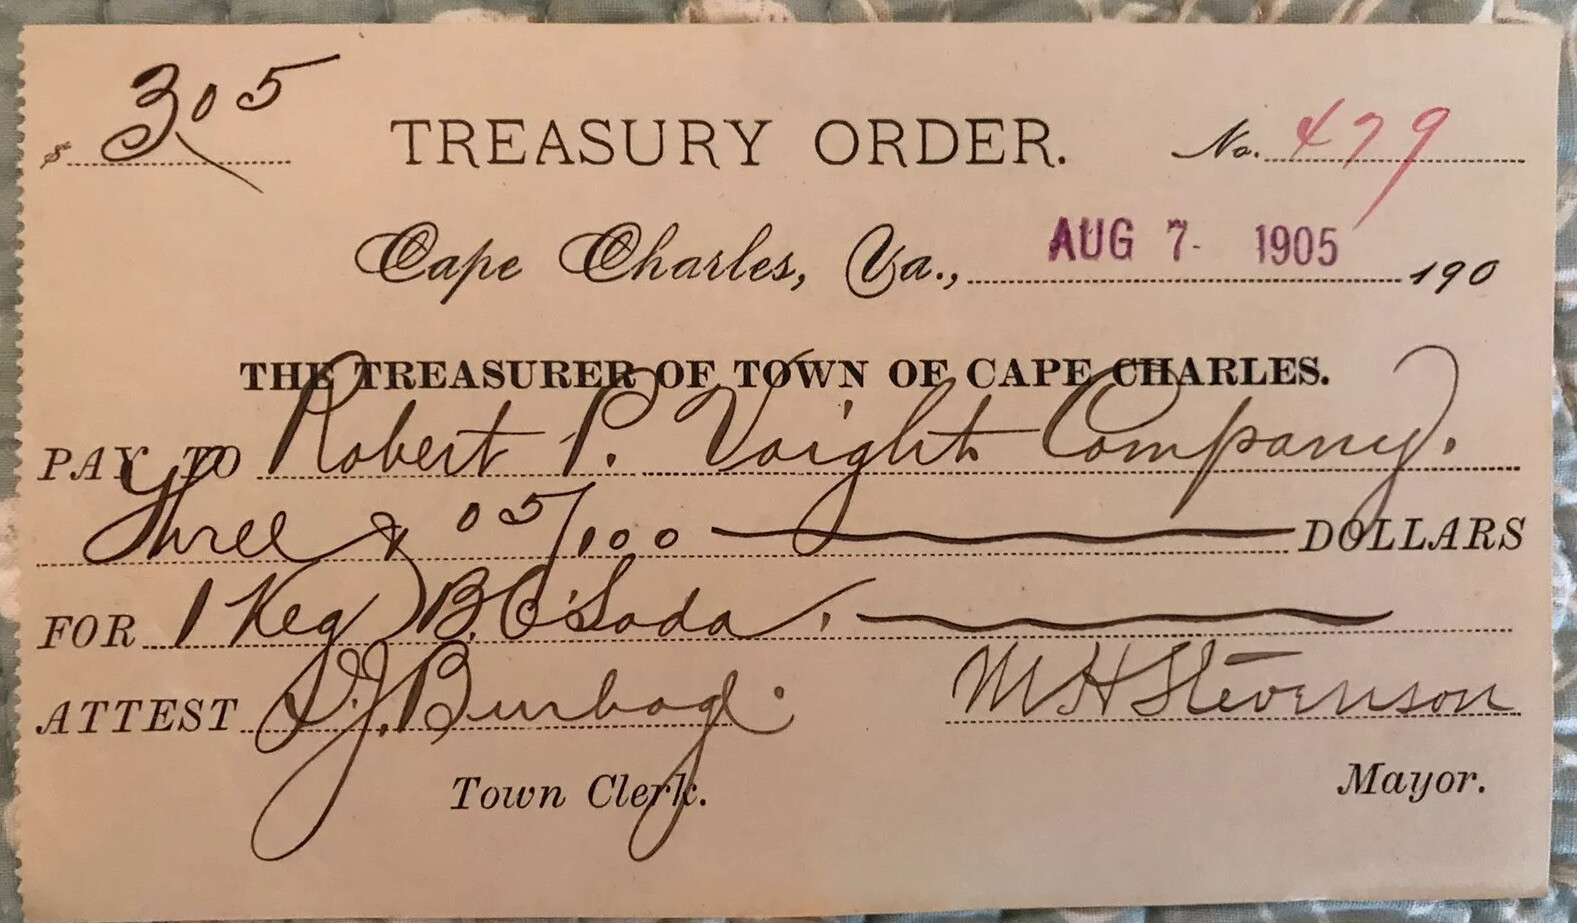 $ 3 05 TREASURY ORDER. No. 479
Cape Charles, Va., AUG 7- 1905 190
THE TREASURER OF TOWN OF CAPE CHARLES.
PAY TO Robert P. Voight Company.
Three & 05/100 DOLLARS
FOR 1 Keg B.C. Soda.
ATTEST J. Burbage M H Stevenson
Town Clerk. Mayor.